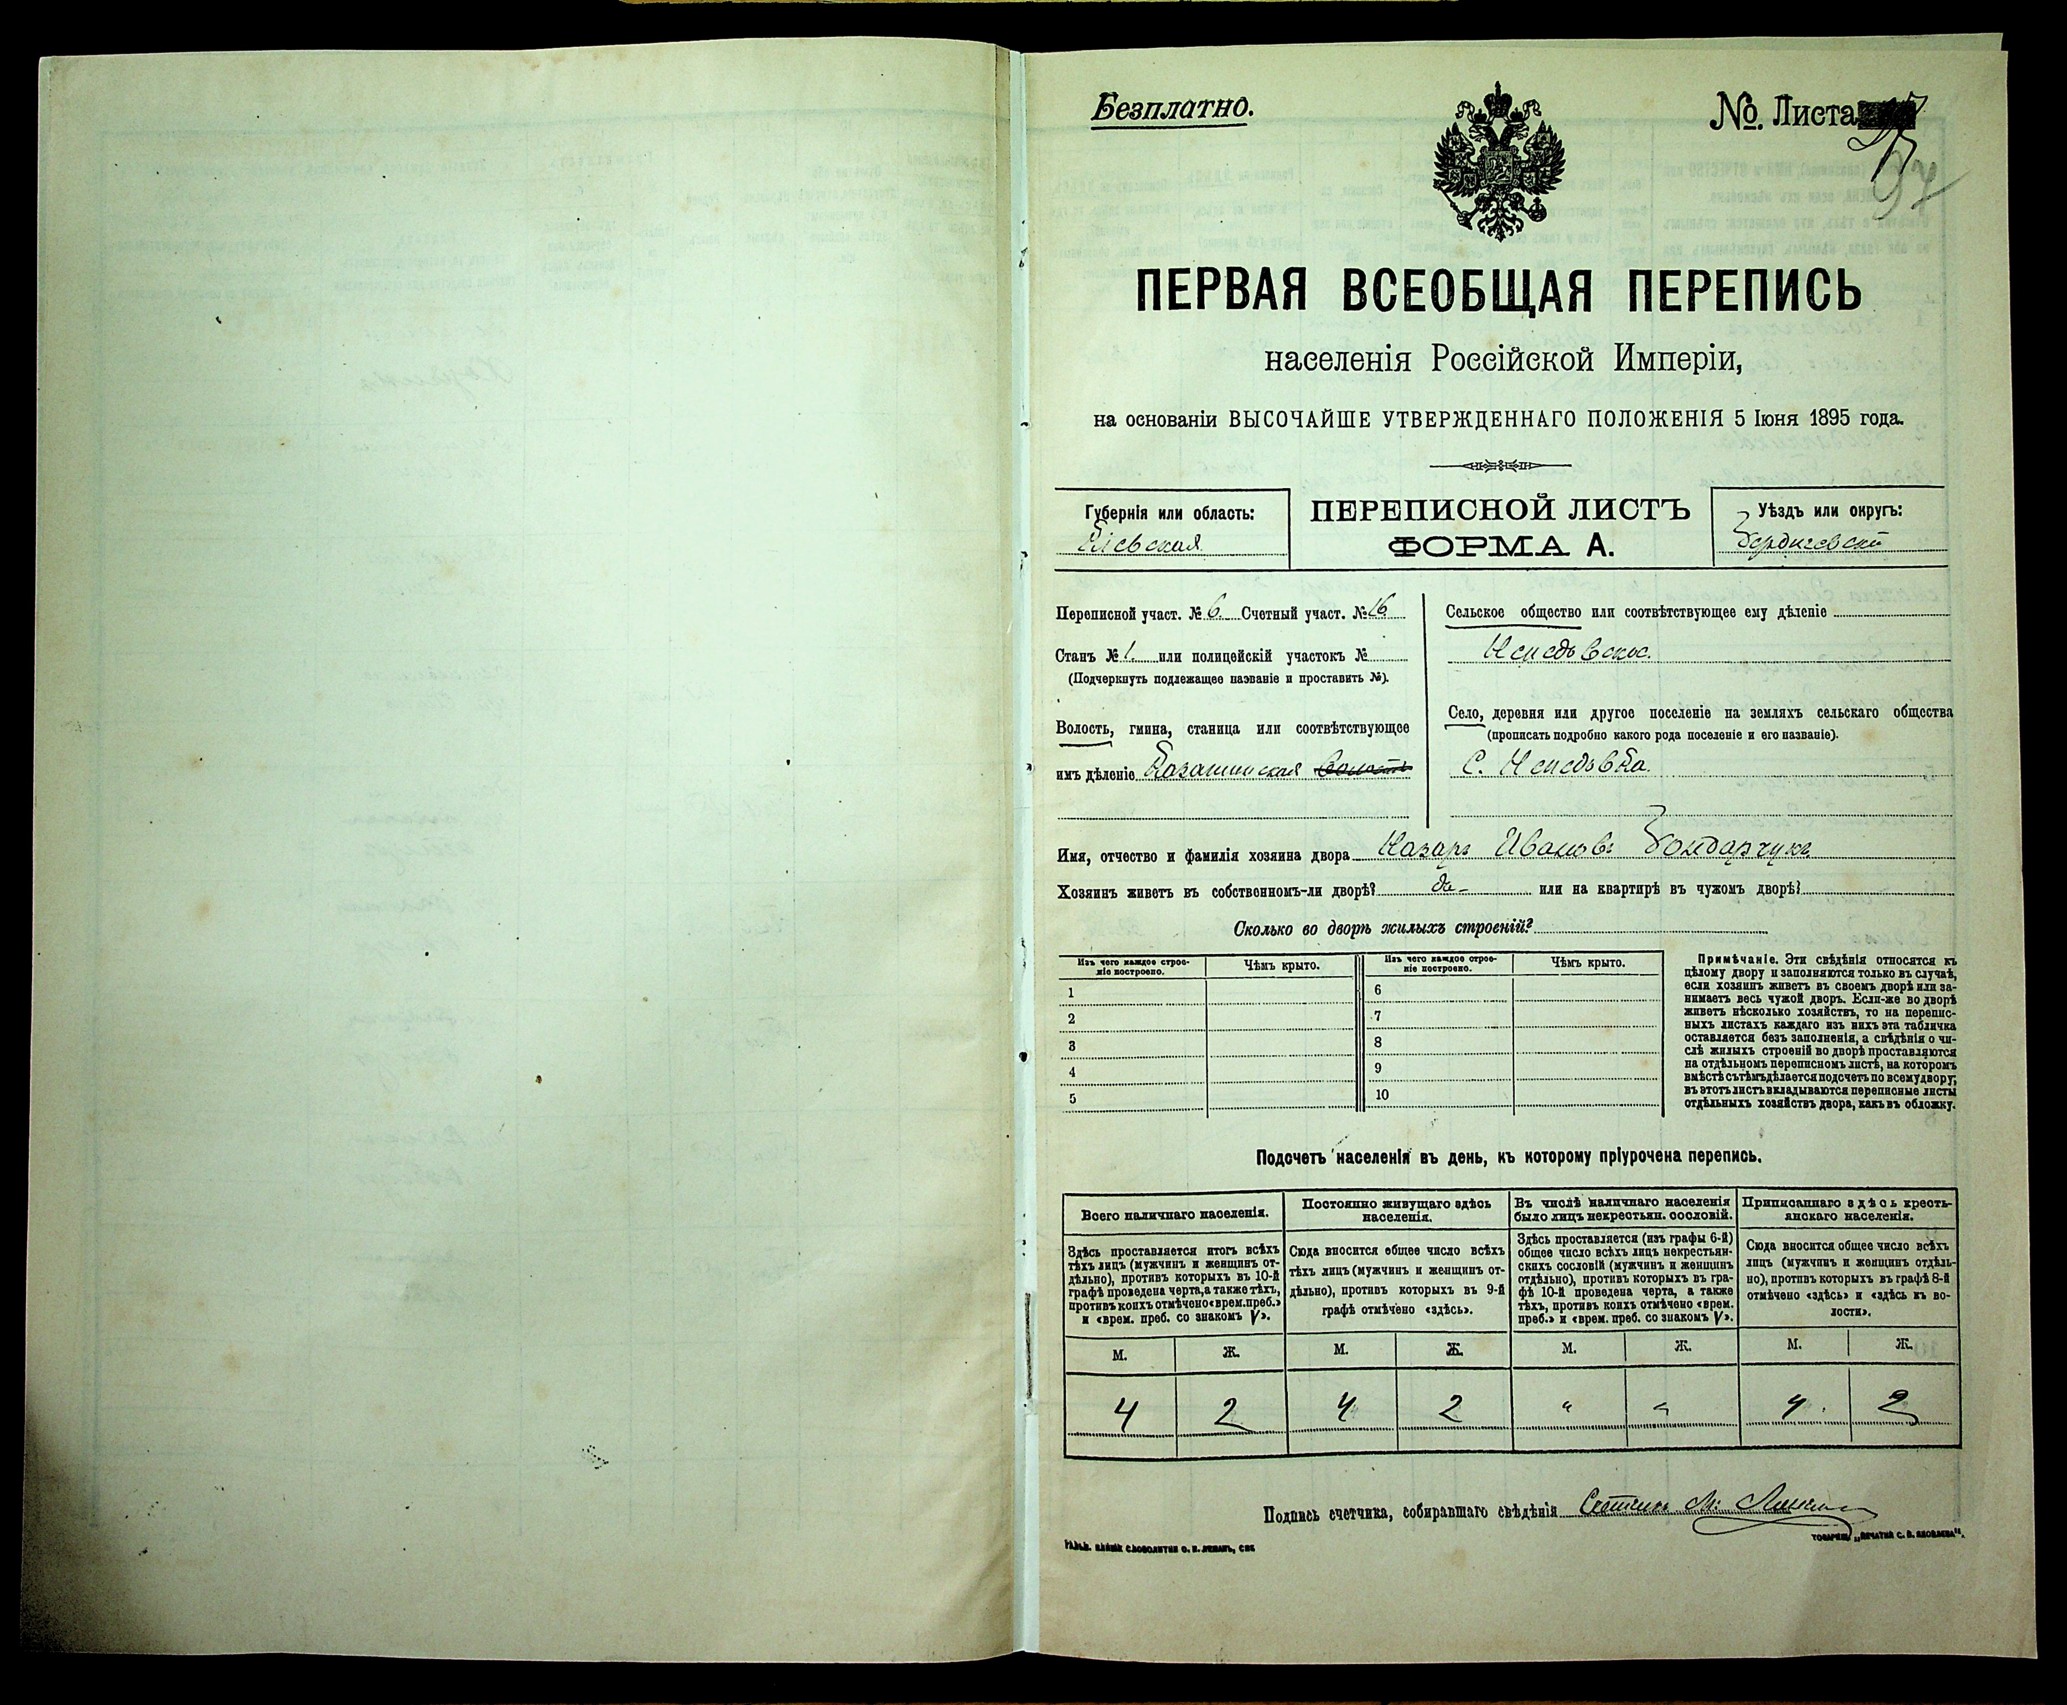 Безплатно.
№. Листа
97
ПЕРВАЯ ВСЕОБЩАЯ ПЕРЕПИСЬ
населенія Россійской Имперіи,
на основаніи ВЫСОЧАЙШЕ УТВЕРЖДЕННАГО ПОЛОЖЕНІЯ 5 Іюня 1895 года.
Губернія или область:
Кіевская
ПЕРЕПИСНОЙ ЛИСТЪ
ФОРМА А.
Уѣздъ или округъ:
Бердичевскій
Переписной участ. № 6. Счетный участ. № 16
Станъ № 1. или полицейскій участокъ №
(Подчеркнуть подлежащее названіе и проставить №).
Волость, гмина, станица или соотвѣтствующее
имъ дѣленіе волость
Сельское общество или соотвѣтствующее ему дѣленіе
Непедовское.
Село, деревня или другое поселеніе на земляхъ сельскаго общества
(прописать подробно какого рода поселеніе и его названіе).
С. Непедовка.
Имя, отчество и фамилія хозяина двора Назаръ Ивановъ Бондарчукъ
Хозяинъ живетъ въ собственномъ-ли дворѣ? да- или на квартирѣ въ чужомъ дворѣ?
Сколько во дворѣ жилыхъ строеній?
Изъ чего каждое строе-
ніе построено.
Чѣмъ крыто.
Изъ чего каждое строе-
ніе построено.
Чѣмъ крыто.
1
2
3
4
5
6
7
8
9
10
Примѣчаніе. Эти свѣдѣнія относятся къ
цѣлому двору и заполняются только въ случаѣ,
если хозяинъ живетъ въ своемъ дворѣ или за-
нимаетъ весь чужой дворъ. Если-же во дворѣ
живетъ нѣсколько хозяйствъ, то на перепис-
ныхъ листахъ каждаго изъ нихъ эта табличка
оставляется безъ заполненія, а свѣдѣнія о чи-
слѣ жилыхъ строеній во дворѣ проставляются
на отдѣльномъ переписномъ листѣ, на которомъ
вмѣстѣ съ тѣмъ дѣлается подсчетъ по всему двору;
въ этотъ листъ вкладываются переписные листы
отдѣльныхъ хозяйствъ двора, какъ въ обложку.
Подсчетъ населенія въ день, къ которому пріурочена перепись.
Всего наличнаго населенія.
Здѣсь проставляется итогъ всѣхъ
тѣхъ лицъ (мужчинъ и женщинъ от-
дѣльно), противъ которыхъ въ 10-й
графѣ проведена черта, а также тѣхъ,
противъ коихъ отмѣчено «врем. преб.»
и «врем. преб. со знакомъ V».
Постоянно живущаго здѣсь
населенія.
Сюда вносится общее число всѣхъ
тѣхъ лицъ (мужчинъ и женщинъ от-
дѣльно), противъ которыхъ въ 9-й
графѣ отмѣчено «здѣсь».
Въ числѣ наличнаго населенія
было лицъ некрестьян. сословій.
Здѣсь проставляется (изъ графы 6-й)
общее число всѣхъ лицъ некрестьян-
скихъ сословій (мужчинъ и женщинъ
отдѣльно), противъ которыхъ въ гра-
фѣ 10-й проведена черта, а также
тѣхъ, противъ коихъ отмѣчено «врем.
преб.» и «врем. преб. со знакомъ V».
Приписаннаго здѣсь кресть-
янскаго населенія.
Сюда вносится общее число всѣхъ
лицъ (мужчинъ и женщинъ отдѣль-
но), противъ которыхъ въ графѣ 8-й
отмѣчено «здѣсь» и «здѣсь къ во-
лости».
М. Ж. М. Ж. М. Ж. М. Ж.
4 2 4 2 " " 4. 2
Подпись счетчика, собиравшаго свѣдѣнія
ТОВАРИЩ. „ПЕЧАТНЯ С. П. ЯКОВЛЕВА".